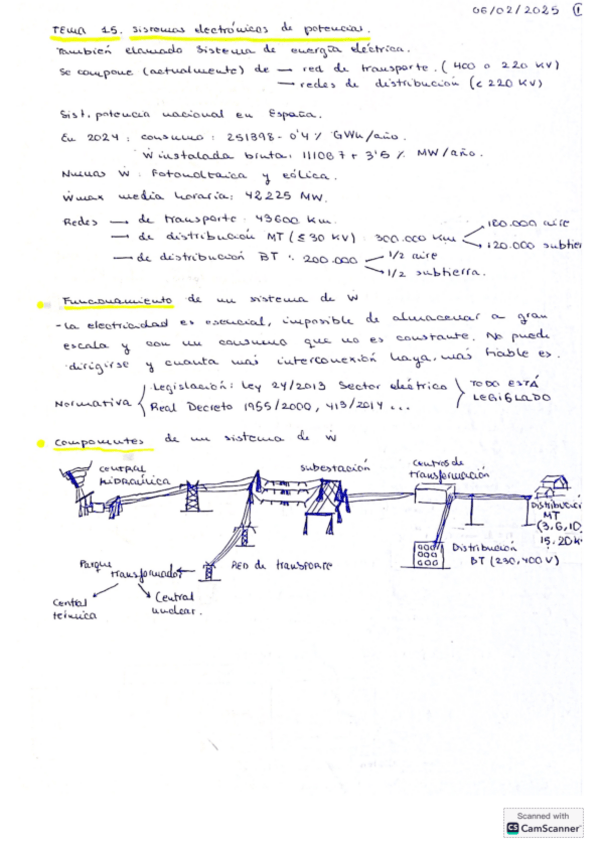 06/02/2025 1
TEMA 15. Sistemas electrónicos de potencias.
También llamado Sistema de energía eléctrica.
Se compone (actualmente) de — red de transporte. (400 o 220 KV)
→ redes de distribución (< 220 KV)
Sist. potencia nacional en España.
En 2024: consumo: 251398 - 0'4 % GWh/año.
Ẇ instalada bruta: 111087 + 3'5 % MW/año.
Nuevas Ẇ: Fotovoltaica y eólica.
Ẇmax media horaria: 42225 MW.
Redes → de transporte: 43600 Km.
→ de distribución MT (≤ 30 KV): 300.000 Km
180.000 aire
120.000 subtier
→ de distribución BT: 200.000
1/2 aire
1/2 subtierra.
Funcionamiento de un sistema de Ẇ
- La electricidad es esencial, imposible de almacenar a gran
escala y con un consumo que no es constante. No puede
dirigirse y cuanta más interconexión haya, más fiable es.
Normativa
Legislación: Ley 24/2013 Sector eléctrico
Real Decreto 1955/2000, 413/2014 ...
TODO ESTÁ
LEGISLADO
Componentes de un sistema de Ẇ
CENTRAL
HIDRAÚLICA
Subestación
Centros de
transformación
Distribución
MT
(3, 6, 10,
15, 20 k
Distribución
BT (230, 400 V)
Parque
transformador
RED de transporte
Central
térmica
Central
nuclear.
Scanned with
CS CamScanner